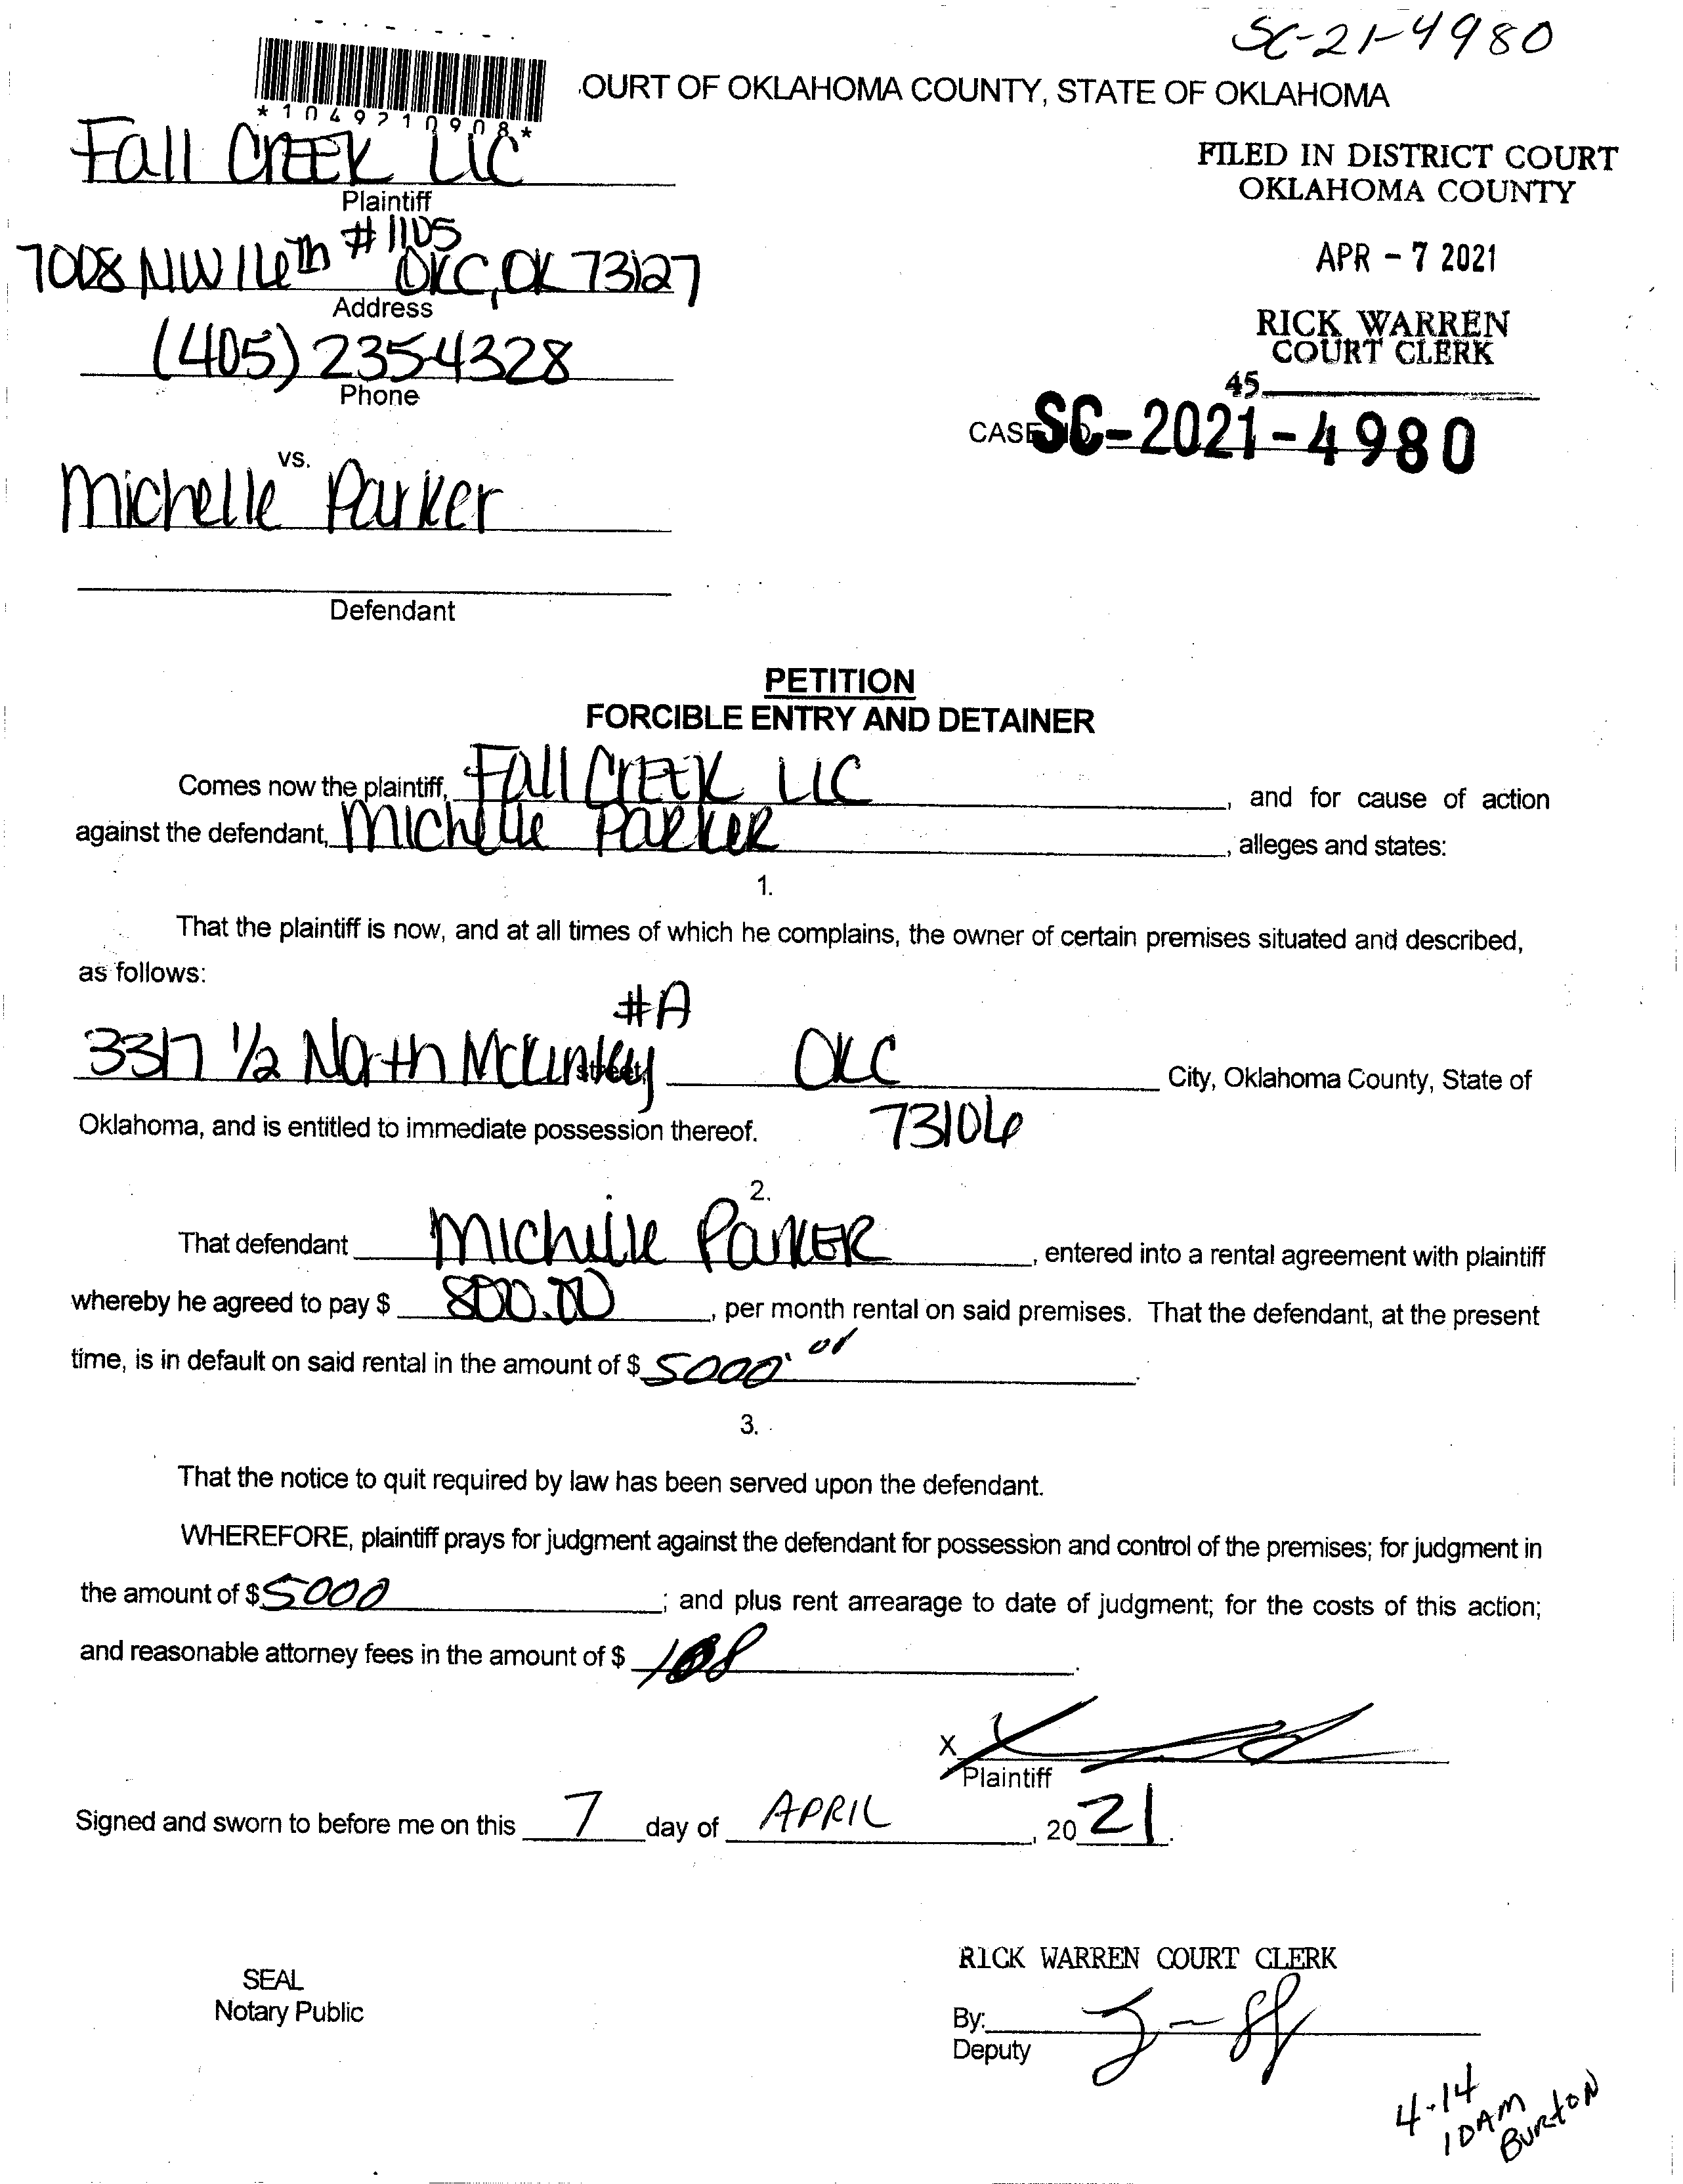 SC-21-4980
*1049710908*
OURT OF OKLAHOMA COUNTY, STATE OF OKLAHOMA
Fall Creek LLC
Plaintiff
FILED IN DISTRICT COURT
OKLAHOMA COUNTY
#1105
7008 NW 16th OKC, OK 73127
Address
APR - 7 2021
(405) 235-4328
Phone
RICK WARREN
COURT CLERK
45
CASE NO. SC-2021-4980
vs.
Michelle Parker
Defendant
PETITION
FORCIBLE ENTRY AND DETAINER
Comes now the plaintiff, Fall Creek LLC, and for cause of action
against the defendant, Michelle Parker, alleges and states:
1.
That the plaintiff is now, and at all times of which he complains, the owner of certain premises situated and described,
as follows:
#A
3317 1/2 North McKinley street, OKC City, Oklahoma County, State of
Oklahoma, and is entitled to immediate possession thereof. 73106
2.
That defendant Michelle Parker, entered into a rental agreement with plaintiff
whereby he agreed to pay $ 800.00, per month rental on said premises. That the defendant, at the present
time, is in default on said rental in the amount of $ 5000.
3.
That the notice to quit required by law has been served upon the defendant.
WHEREFORE, plaintiff prays for judgment against the defendant for possession and control of the premises; for judgment in
the amount of $ 5000; and plus rent arrearage to date of judgment; for the costs of this action;
and reasonable attorney fees in the amount of $
X
Plaintiff
Signed and sworn to before me on this 7 day of APRIL, 20 21.
RICK WARREN COURT CLERK
SEAL
Notary Public
By:
Deputy
4-14
10AM
BURTON